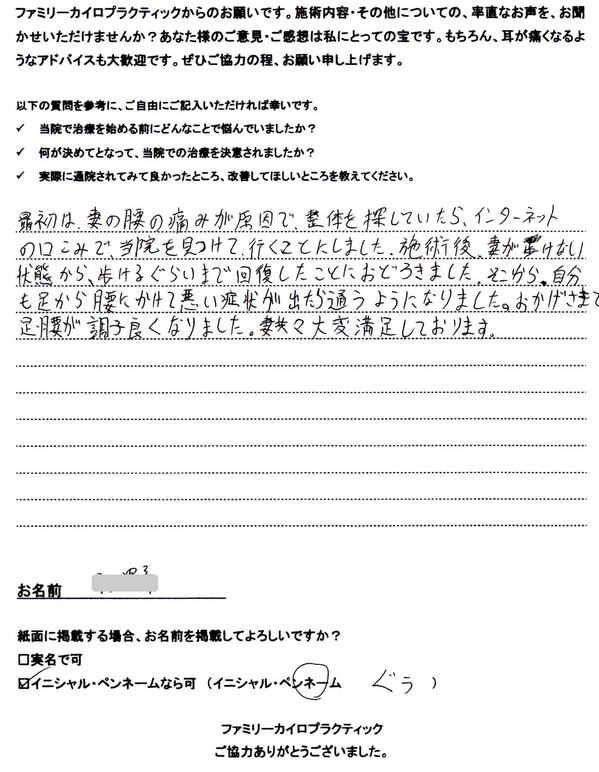 ファミリーカイロプラクティックからのお願いです。施術内容・その他についての、率直なお声を、お聞
かせいただけませんか？あなた様のご意見・ご感想は私にとっての宝です。もちろん、耳が痛くなるよ
うなアドバイスも大歓迎です。ぜひご協力の程、お願い申し上げます。
以下の質問を参考に、ご自由にご記入いただければ幸いです。
✓ 当院で治療を始める前にどんなことで悩んでいましたか？
✓ 何が決めてとなって、当院での治療を決意されましたか？
✓ 実際に通院されてみて良かったところ、改善してほしいところを教えてください。
最初は、妻の腰の痛みが原因で、整体を探していたら、インターネット
の口こみで、当院を見つけて、行くことにしました。施術後、妻が動けない
状態から、歩けるぐらいまで回復したことにおどろきました。そこから、自分
も足から腰にかけて悪い症状が出たら通うようになりました。おかげさまで
足腰が調子良くなりました。妻共々大変満足しております。
お名前
紙面に掲載する場合、お名前を掲載してよろしいですか？
□実名で可
☑イニシャル・ペンネームなら可（イニシャル・ペンネーム ぐぅ ）
ファミリーカイロプラクティック
ご協力ありがとうございました。